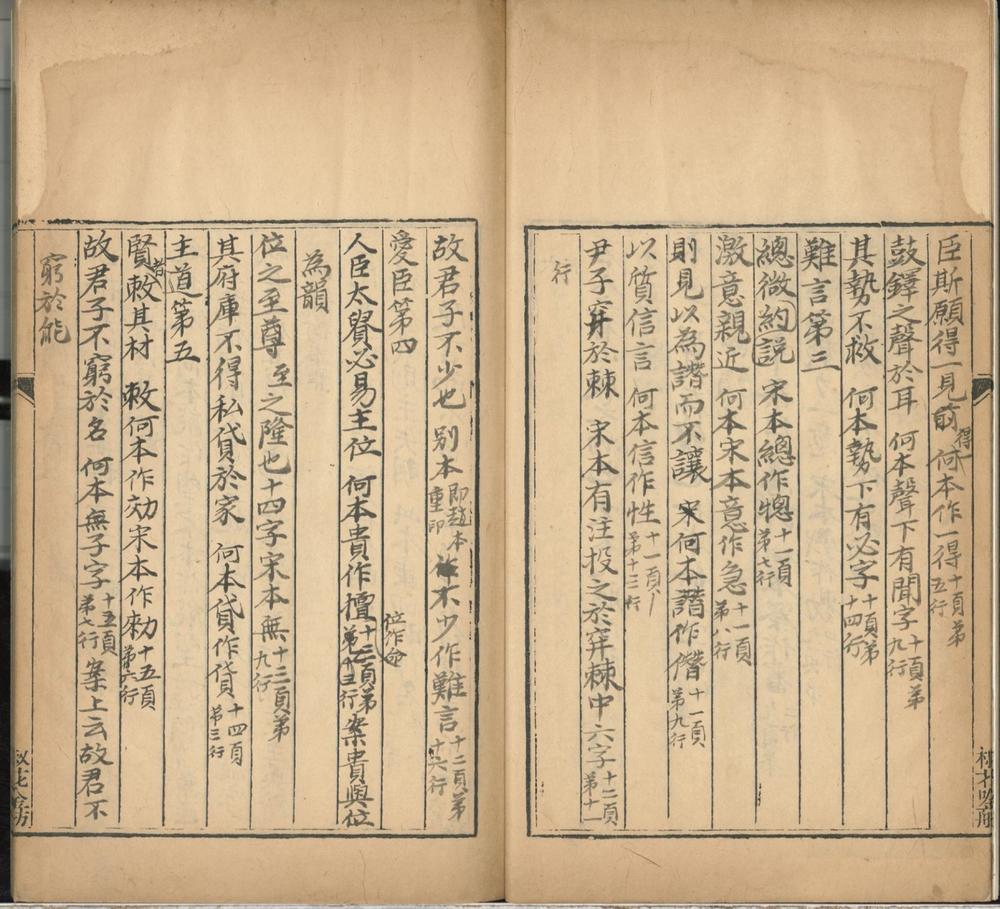 臣斯願得一見前 何本作一得 十頁第五行
得一
鼓鐸之聲於耳 何本聲下有聞字 十頁第九行
其勢不救 何本勢下有必字 十頁第十四行
難言第三
總微約説 宋本總作摠 十一頁第七行
激意親近 何本宋本意作急 十一頁第八行
則見以為譖而不讓 宋何本譖作僭 十一頁第九行
以質信言 何本信作性 十一頁第十三行
尹子穽於棘 宋本有注投之於穽棘中六字 十二頁第十一
行
故君子不少也 别本 即趙本重印 不少作難言 十二頁第十六行
愛臣第四
位作命
人臣太貴必易主位 何本貴作擅 十三頁第三行 案貴與位
為韻
位之至尊至之隆也十四字宋本無 十三頁第九行
其府庫不得私貸於家 何本貸作貨 十四頁第三行
主道第五
賢者敕其材 敕何本作効宋本作勑 十五頁第六行
故君子不窮於名 何本無子字 十五頁第七行 案上云故君不
窮於能